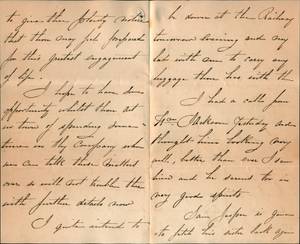 to give thee shortly notice
that thou may feel prepared
for this greatest engagement
of life.
I hope to have some
opportunity whilst thou art
in town of spending some
time in thy Company when
we can talk these matters
over so will not trouble thee
with further details now
I quite intend to
be down at the Railway
tomorrow evening and my
lad with me to carry any
luggage thou has with thee
I had a call from
Jackson yesterday and
thought him looking very
well, better than ever I saw
him and he seemed too in
very good spirits
Sam is going
to fetch his sister back again